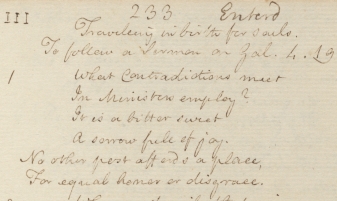 III 233 Enterd
Travelling in birth for souls.
To follow a Sermon on Gal. 4. 19
1 What Contradictions meet
In Ministers employ?
It is a bitter sweet
A sorrow full of joy.
No other post affords a place,
For equal honor or disgrace.